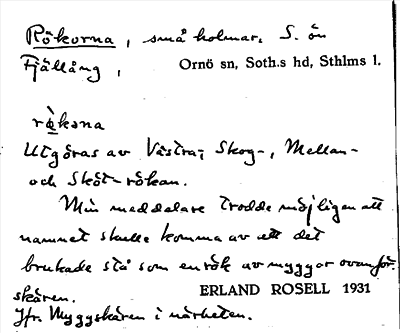 Rökorna, små holmar, S. ön
Fjällång, Ornö sn, Soth.s hd, Sthlms l.
Utgöras av Västra-, Skog-, Mellan-
och Sköt-rökan.
Min meddelare trodde möjligen att
namnet skulle komma av att det
brukade stå som en rök av myggor ovanför
skären. ERLAND ROSELL 1931
Jfr. Myggskären i närheten.